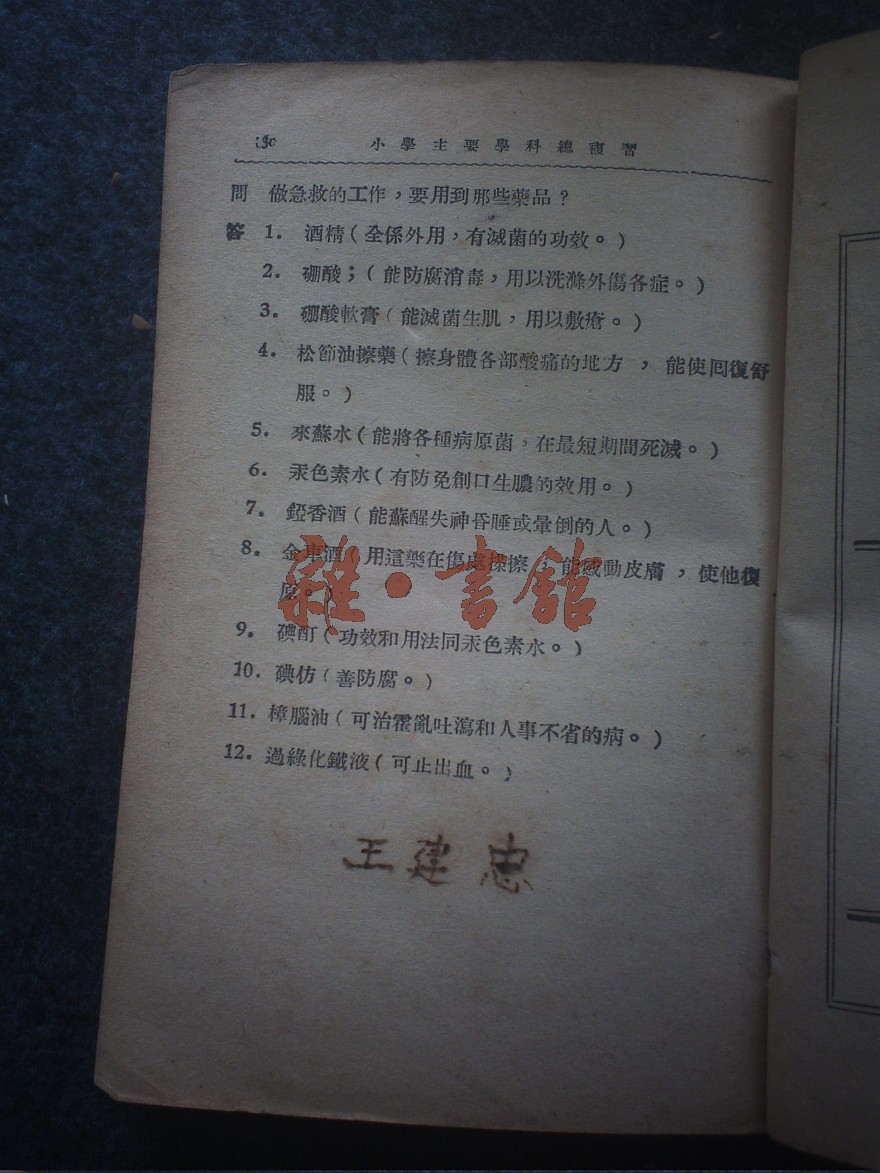 小學主要學科總複習
問 做急救的工作，要用到那些藥品？
答 1. 酒精（全係外用，有滅菌的功效。）
2. 硼酸；（能防腐消毒，用以洗滌外傷各症。）
3. 硼酸軟膏（能滅菌生肌，用以敷瘡。）
4. 松節油擦藥（擦身體各部酸痛的地方，能使囘復舒
服。）
5. 來蘇水（能將各種病原菌，在最短期間死滅。）
6. 汞色素水（有防免創口生膿的效用。）
7. 錏香酒（能蘇醒失神昏睡或暈倒的人。）
8. 金車酒（用這藥在傷處揉擦，能感動皮膚，使他復
原。）
9. 碘酊（功效和用法同汞色素水。）
10. 碘仿（善防腐。）
11. 樟腦油（可治霍亂吐瀉和人事不省的病。）
12. 過綠化鐵液（可止出血。）
雜·書館
王建忠